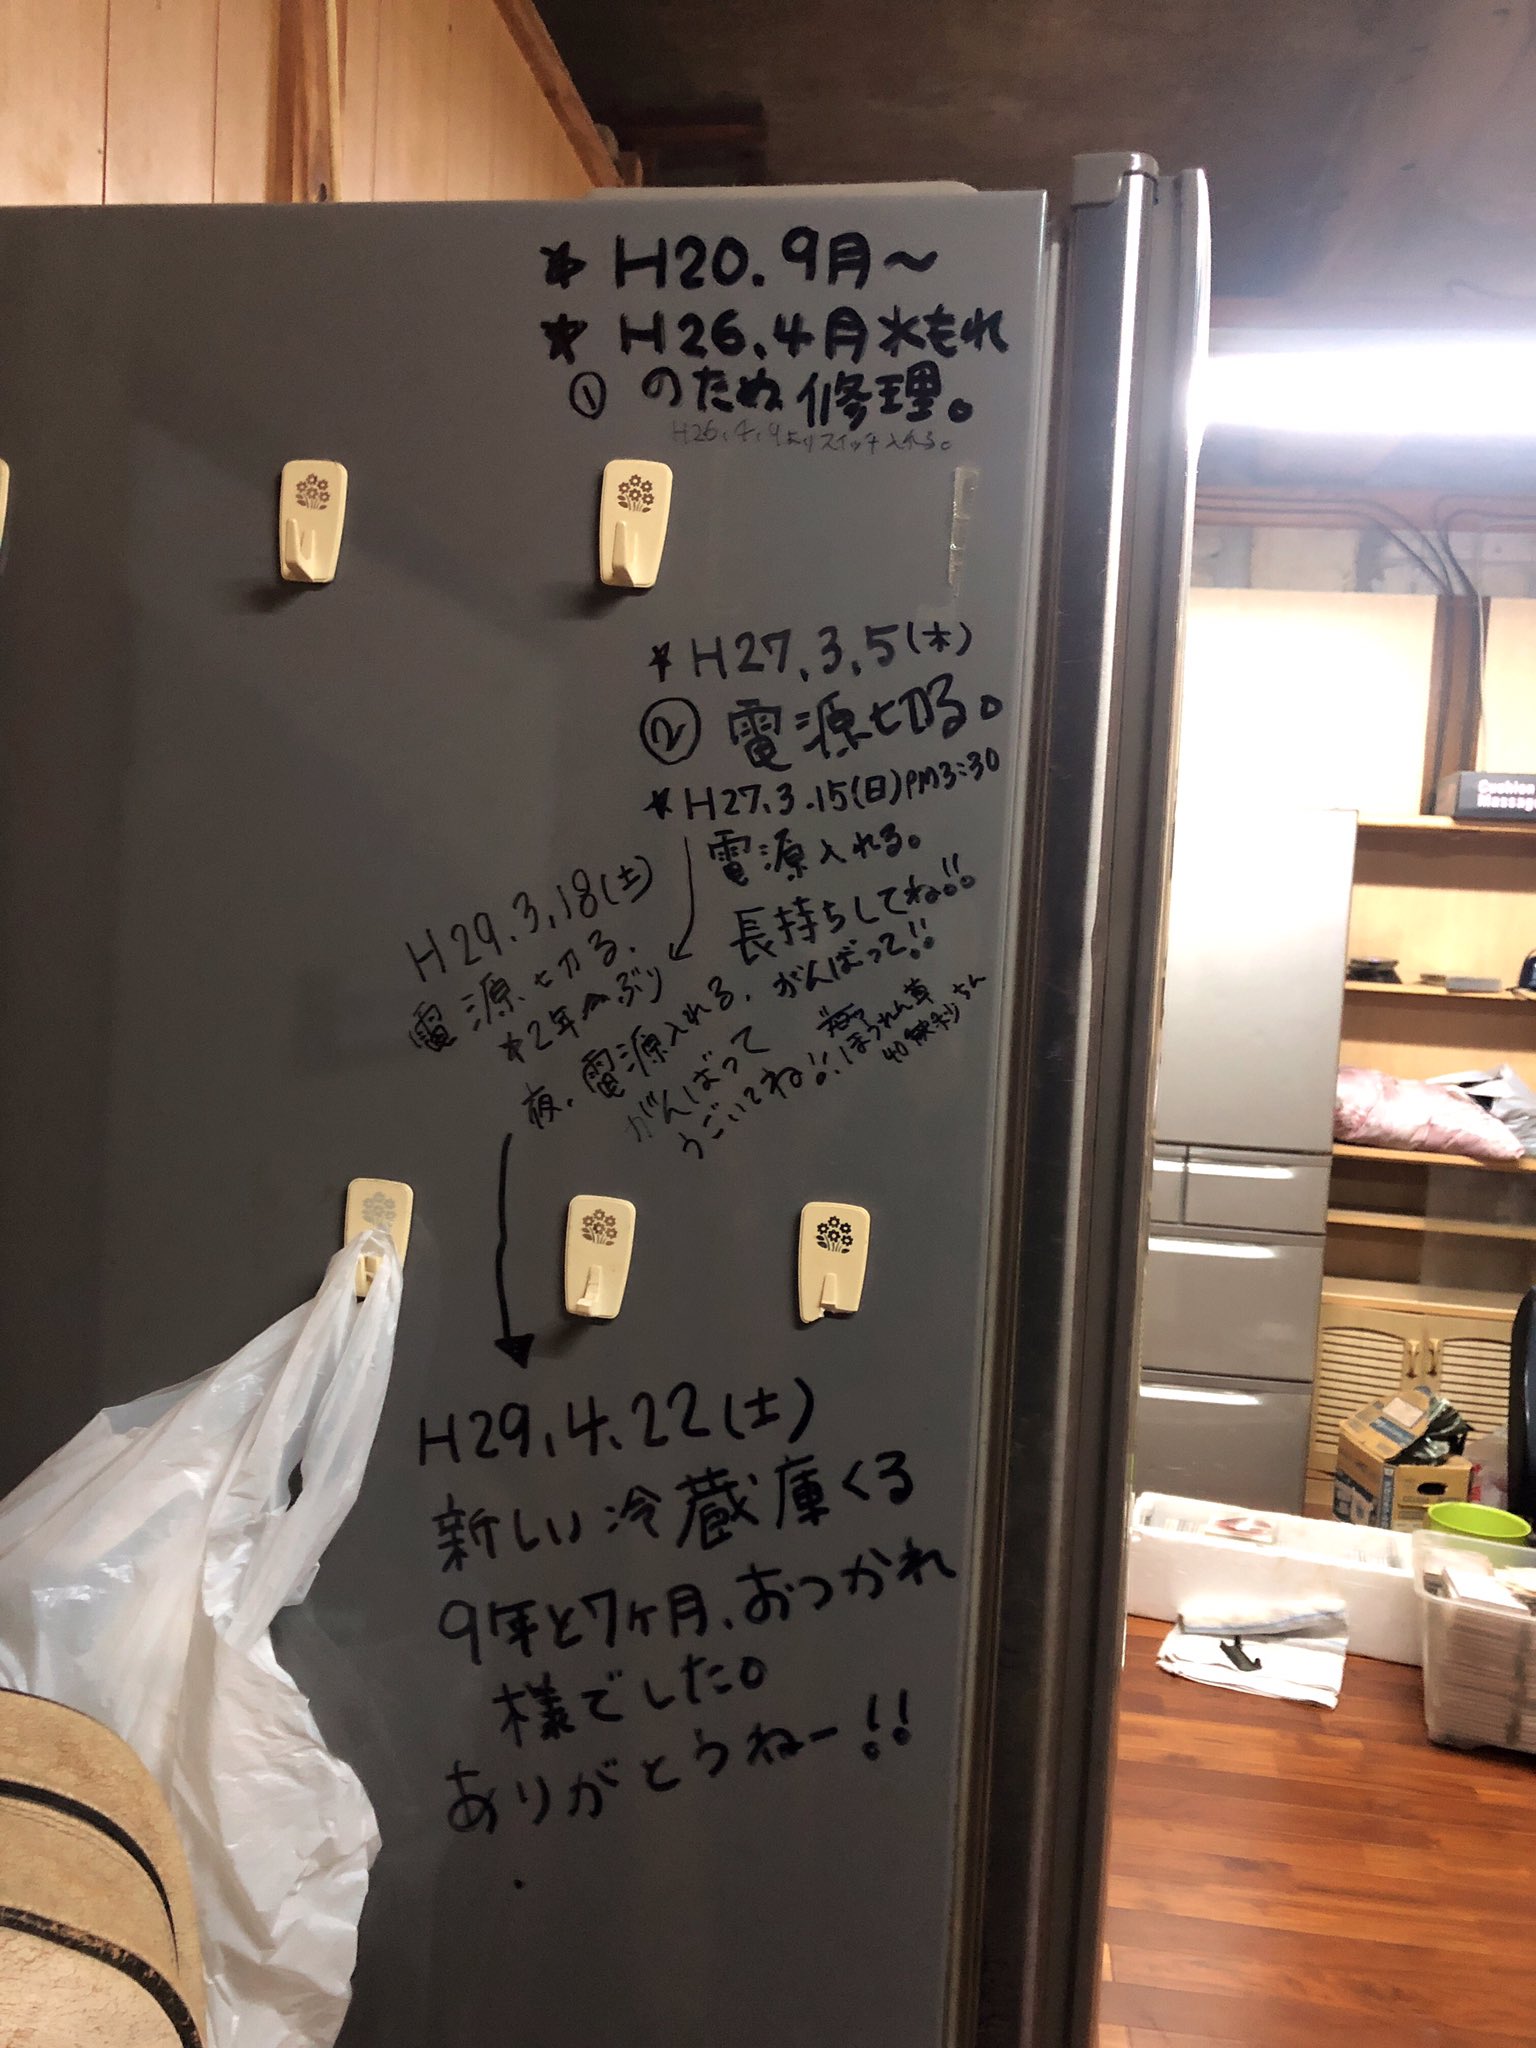 * H20.9月〜
* H26.4月水もれ
① のため修理。
H26.4.9よりスイッチ入れる。
* H27.3.5(木)
② 電源切る。
* H27.3.15(日)PM3:30
電源入れる。
長持ちしてね!!
がんばって!!
H29.3.18(土)
電源切る.
*2年ぶり
夜.電源入れる.
がんばって
うごいてね!!.
ほうれん草
40
H29.4.22(土)
新しい冷蔵庫くる
9年と7ヶ月.おつかれ
様でした。
ありがとうねー!!
Cushion
Massage